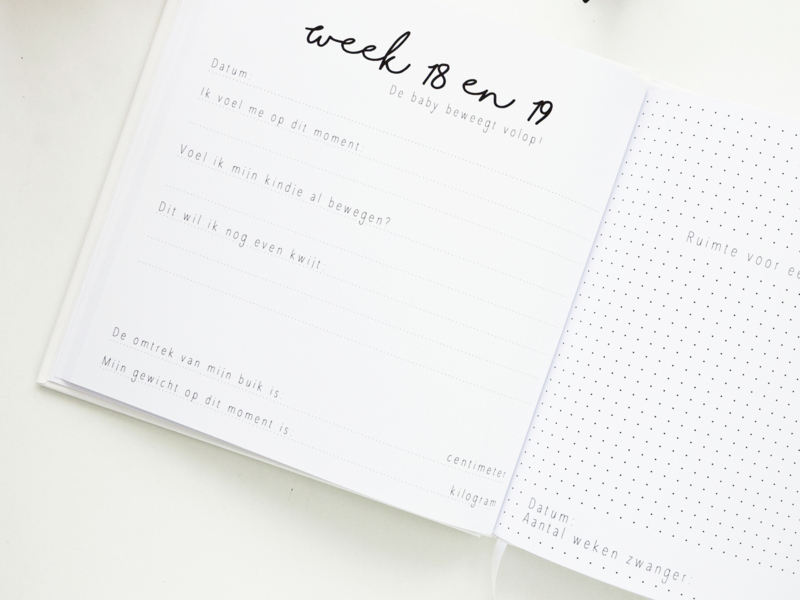 week 18 en 19
De baby beweegt volop!
Datum
Ik voel me op dit moment
Voel ik mijn kindje al bewegen?
Dit wil ik nog even kwijt
De omtrek van mijn buik is:
centimeter
Mijn gewicht op dit moment is
kilogram
Ruimte voor
Datum:
Aantal weken zwanger: